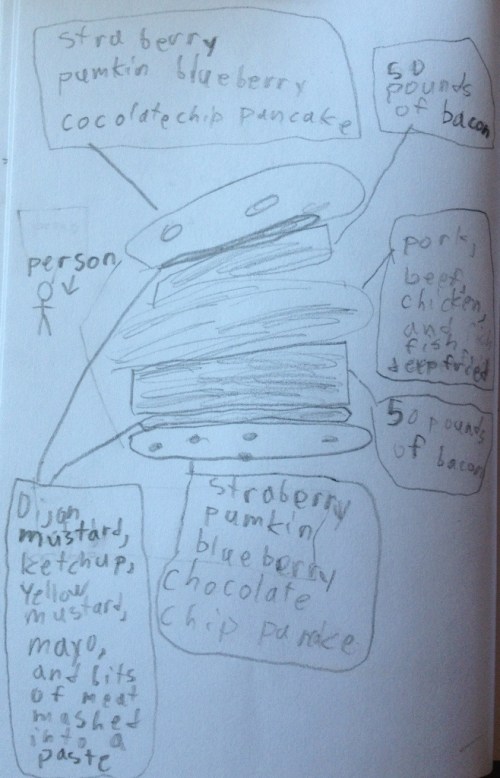 stra berry
pumkin blueberry
cocolate chip pancake
50
pounds
of bacon
person
pork,
beef,
chicken,
and
fish
deep fried
50 pounds
of bacon
Dijan
mustard,
ketchup,
Yellow
mustard,
mayo,
and bits
of meat
mashed
into a
paste
straberry
pumkin
blueberry
chocolate
chip pancake